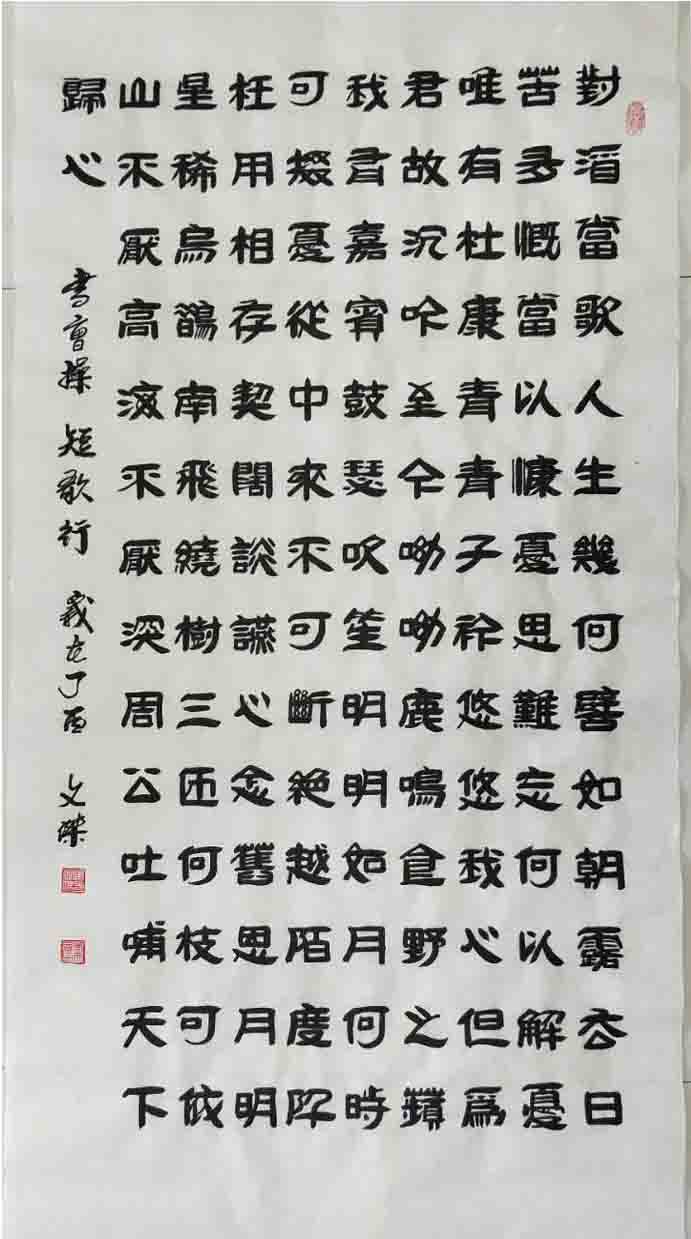 對酒當歌人生幾何譬如朝露去日
苦多慨當以慷憂思難忘何以解憂
唯有杜康青青子衿悠悠我心但爲
君故沉吟至今呦呦鹿鳴食野之蘋
我有嘉賓鼓瑟吹笙明明如月何時
可掇憂從中來不可斷絕越陌度阡
枉用相存契闊談讌心念舊恩月明
星稀烏鵲南飛繞樹三匝何枝可依
山不厭高海不厭深周公吐哺天下
歸心
書曹操短歌行 歲在丁酉 文傑